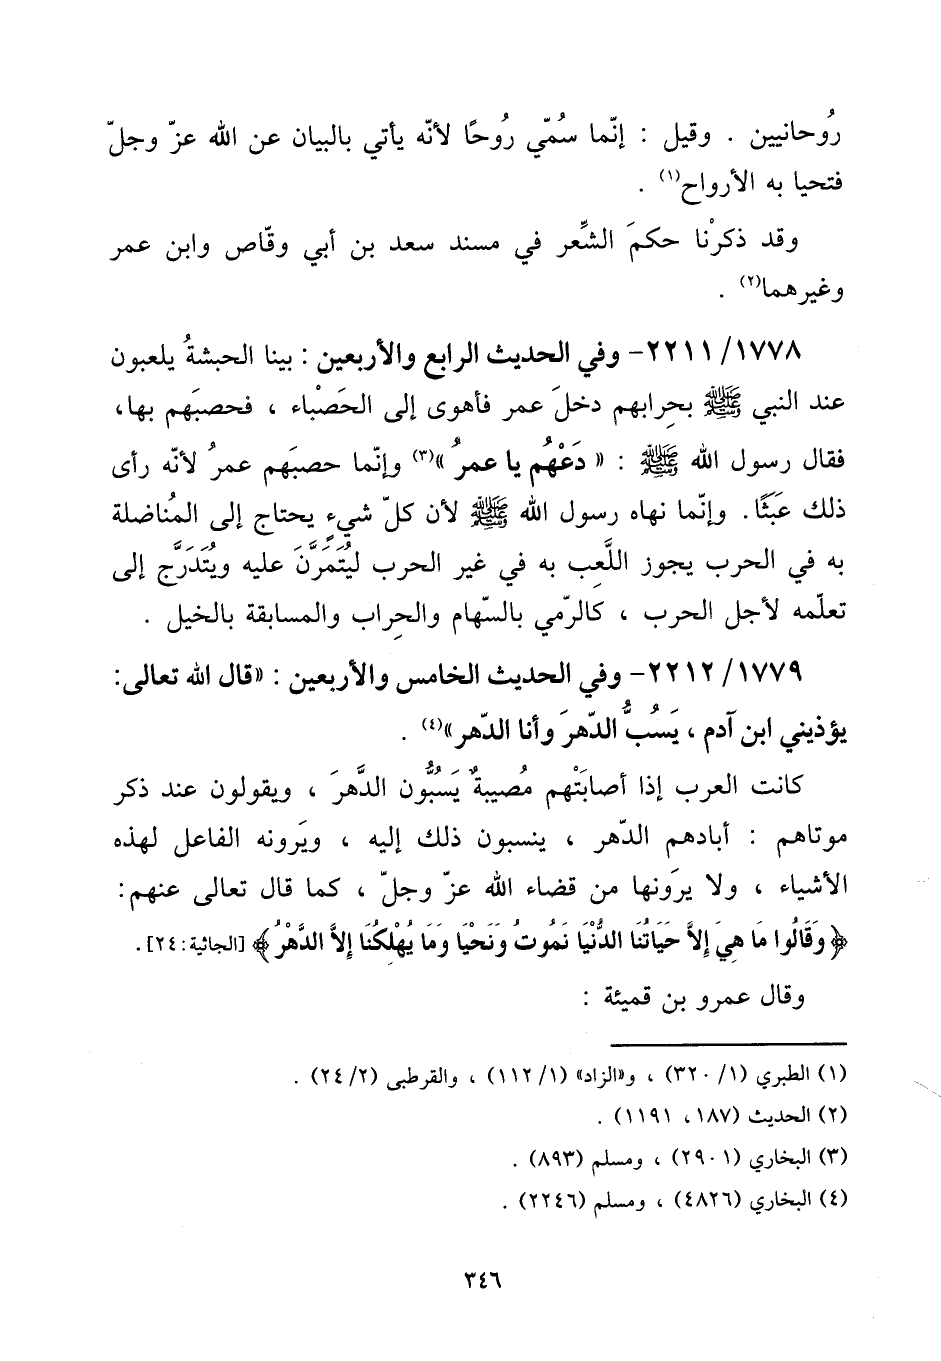 رُوحانيين . وقيل : إنّما سُمّي رُوحًا لأنّه يأتي بالبيان عن الله عزّ وجلّ
فتحيا به الأرواح(١) .
وقد ذكرْنا حكمَ الشِّعر في مسند سعد بن أبي وقّاص وابن عمر
وغيرهما(٢) .
١٧٧٨/ ٢٢١١- وفي الحديث الرابع والأربعين : بينا الحبشةُ يلعبون
عند النبي ﷺ بحِرابهم دخلَ عمر فأهوى إلى الحَصْباء ، فحصبَهم بها،
فقال رسول الله ﷺ : « دَعْهُم يا عمرُ »(٣) وإنّما حصبَهم عمرُ لأنّه رأى
ذلك عَبَثًا. وإنّما نهاه رسول الله ﷺ لأن كلّ شيءٍ يحتاج إلى المُناضلة
به في الحرب يجوز اللَّعِب به في غير الحرب ليُتَمَرَّنَ عليه ويُتَدَرَّج إلى
تعلّمه لأجل الحرب ، كالرّمي بالسّهام والحِراب والمسابقة بالخيل .
١٧٧٩/ ٢٢١٢- وفي الحديث الخامس والأربعين : «قال الله تعالى:
يؤذيني ابن آدم ، يَسُبُّ الدّهرَ وأنا الدّهر»(٤) .
كانت العرب إذا أصابَتْهم مُصيبةٌ يَسُبُّون الدَّهرَ ، ويقولون عند ذكر
موتاهم : أبادهم الدّهر ، ينسبون ذلك إليه ، ويَرونه الفاعل لهذه
الأشياء ، ولا يرَونها من قضاء الله عزّ وجلّ ، كما قال تعالى عنهم:
﴿وَقَالُوا مَا هِيَ إِلاَّ حَيَاتُنَا الدُّنْيَا نَمُوتُ وَنَحْيَا وَمَا يُهْلِكُنَا إِلاَّ الدَّهْرُ﴾ [الجاثية: ٢٤].
وقال عمرو بن قميئة :
(١) الطبري (١/ ٣٢٠) ، و«الزاد» (١/ ١١٢) ، والقرطبي (٢/ ٢٤) .
(٢) الحديث (١٨٧، ١١٩١) .
(٣) البخاري (٢٩٠١) ، ومسلم (٨٩٣) .
(٤) البخاري (٤٨٢٦) ، ومسلم (٢٢٤٦) .
٣٤٦